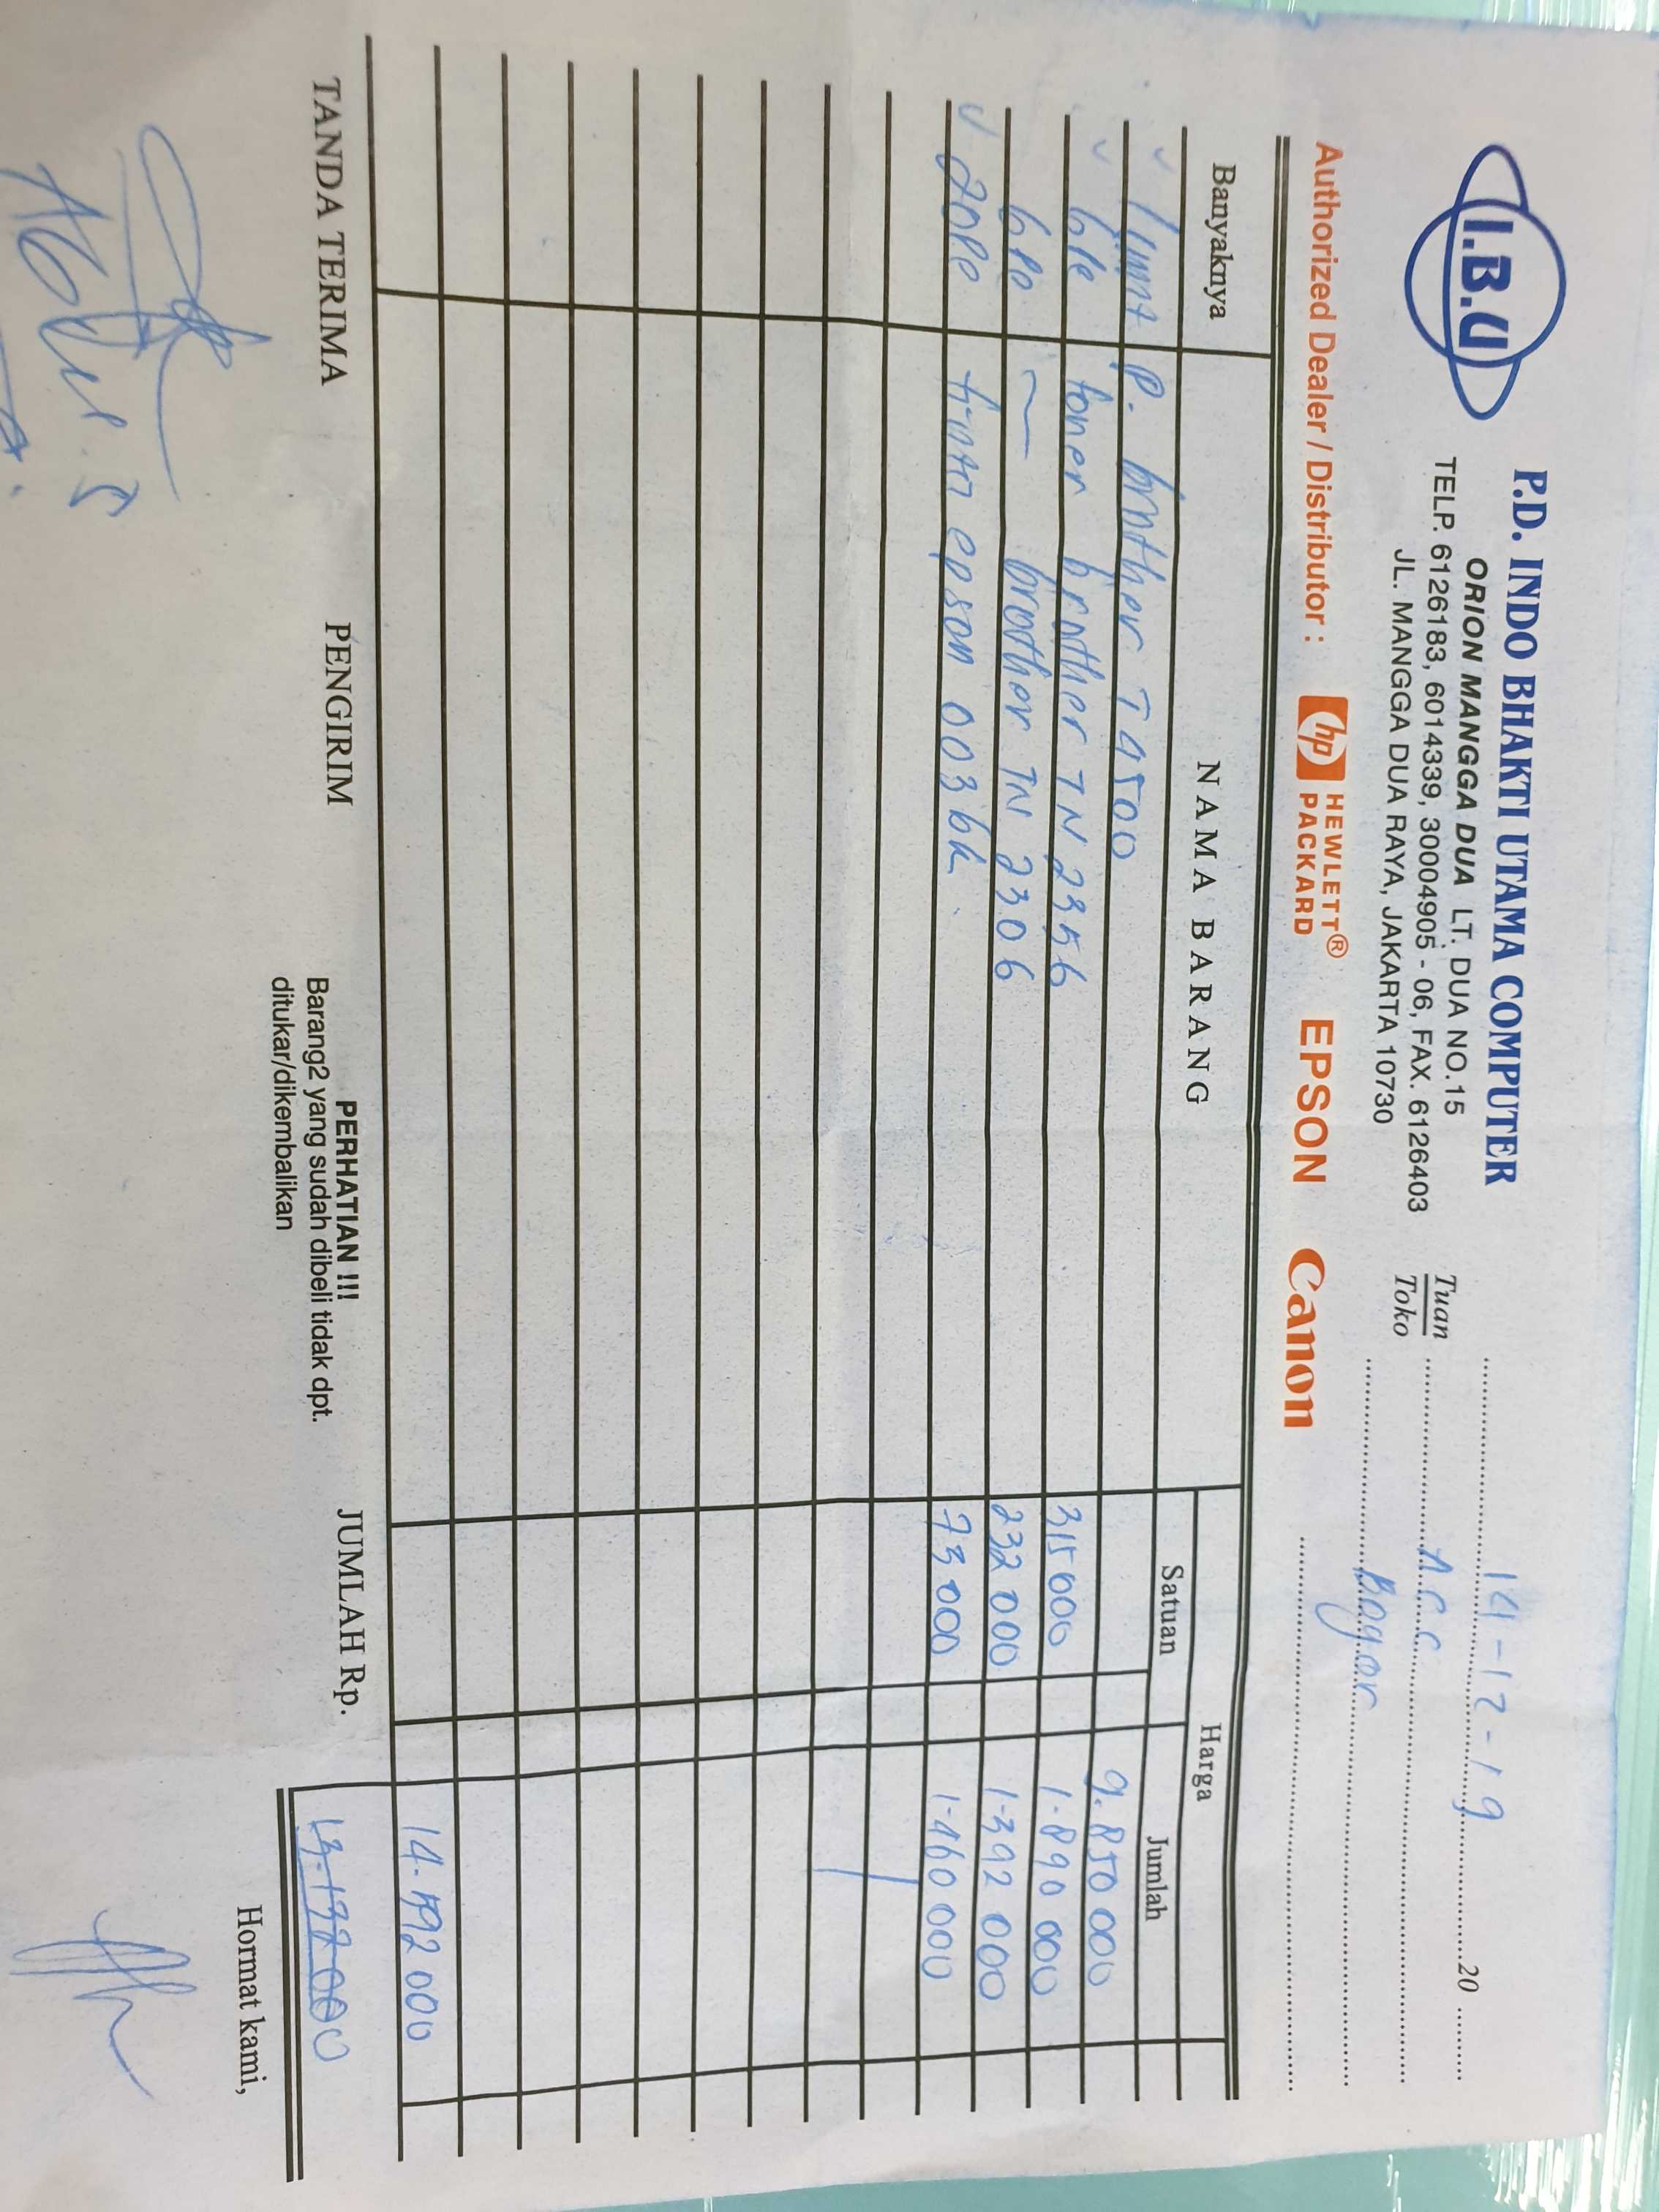 I.B.U
P.D. INDO BHAKTI UTAMA COMPUTER
ORION MANGGA DUA LT. DUA NO.15
TELP. 6126183, 6014339, 30004905 - 06, FAX. 6126403
JL. MANGGA DUA RAYA, JAKARTA 10730
14-12-19 20
Tuan A.C.C
Toko Bogor
Authorized Dealer / Distributor : hp HEWLETT® PACKARD EPSON Canon
Banyaknya NAMA BARANG Harga
Satuan Jumlah
1 unit P. brother T4500 9.850 000
6 toner brother TN 2356 315 000 1.890 000
6 brother TN 2306 232 000 1.392 000
20 epson 003 bk. 73 000 1.460 000
14.592 000
TANDA TERIMA PENGIRIM JUMLAH Rp. 13.132 000
PERHATIAN !!!
Barang2 yang sudah dibeli tidak dpt.
ditukar/dikembalikan
Hormat kami,